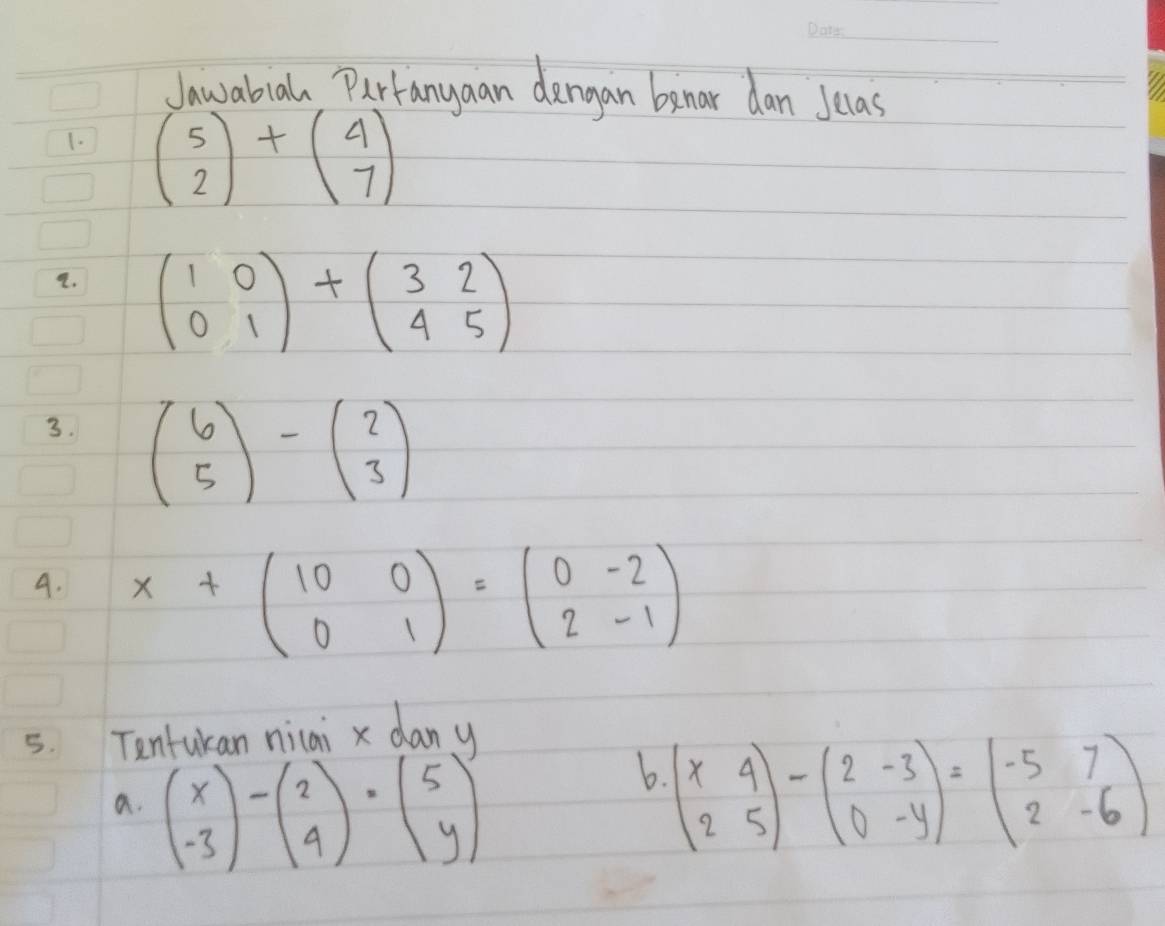 Date:
Jawablah Pertanyaan dengan benar dan Jelas
1. (5 2) + (4 7)
2. (1 0 0 1) + (3 2 4 5)
3. (6 5) - (2 3)
4. x + (10 0 0 1) = (0 -2 2 -1)
5. Tentukan nilai x dan y
a. (x -3) - (2 4) = (5 y)
b. (x 4 2 5) - (2 -3 0 -y) = (-5 7 2 -6)